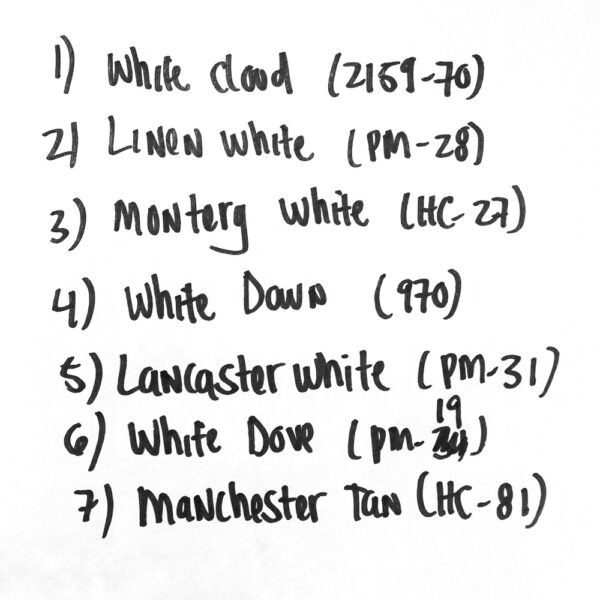 1) White Cloud (2159-70)
2) Linen White (PM-28)
3) Monterg White (HC-27)
4) White Down (970)
5) Lancaster White (PM-31)
6) White Dove (PM-19)
7) Manchester Tan (HC-81)